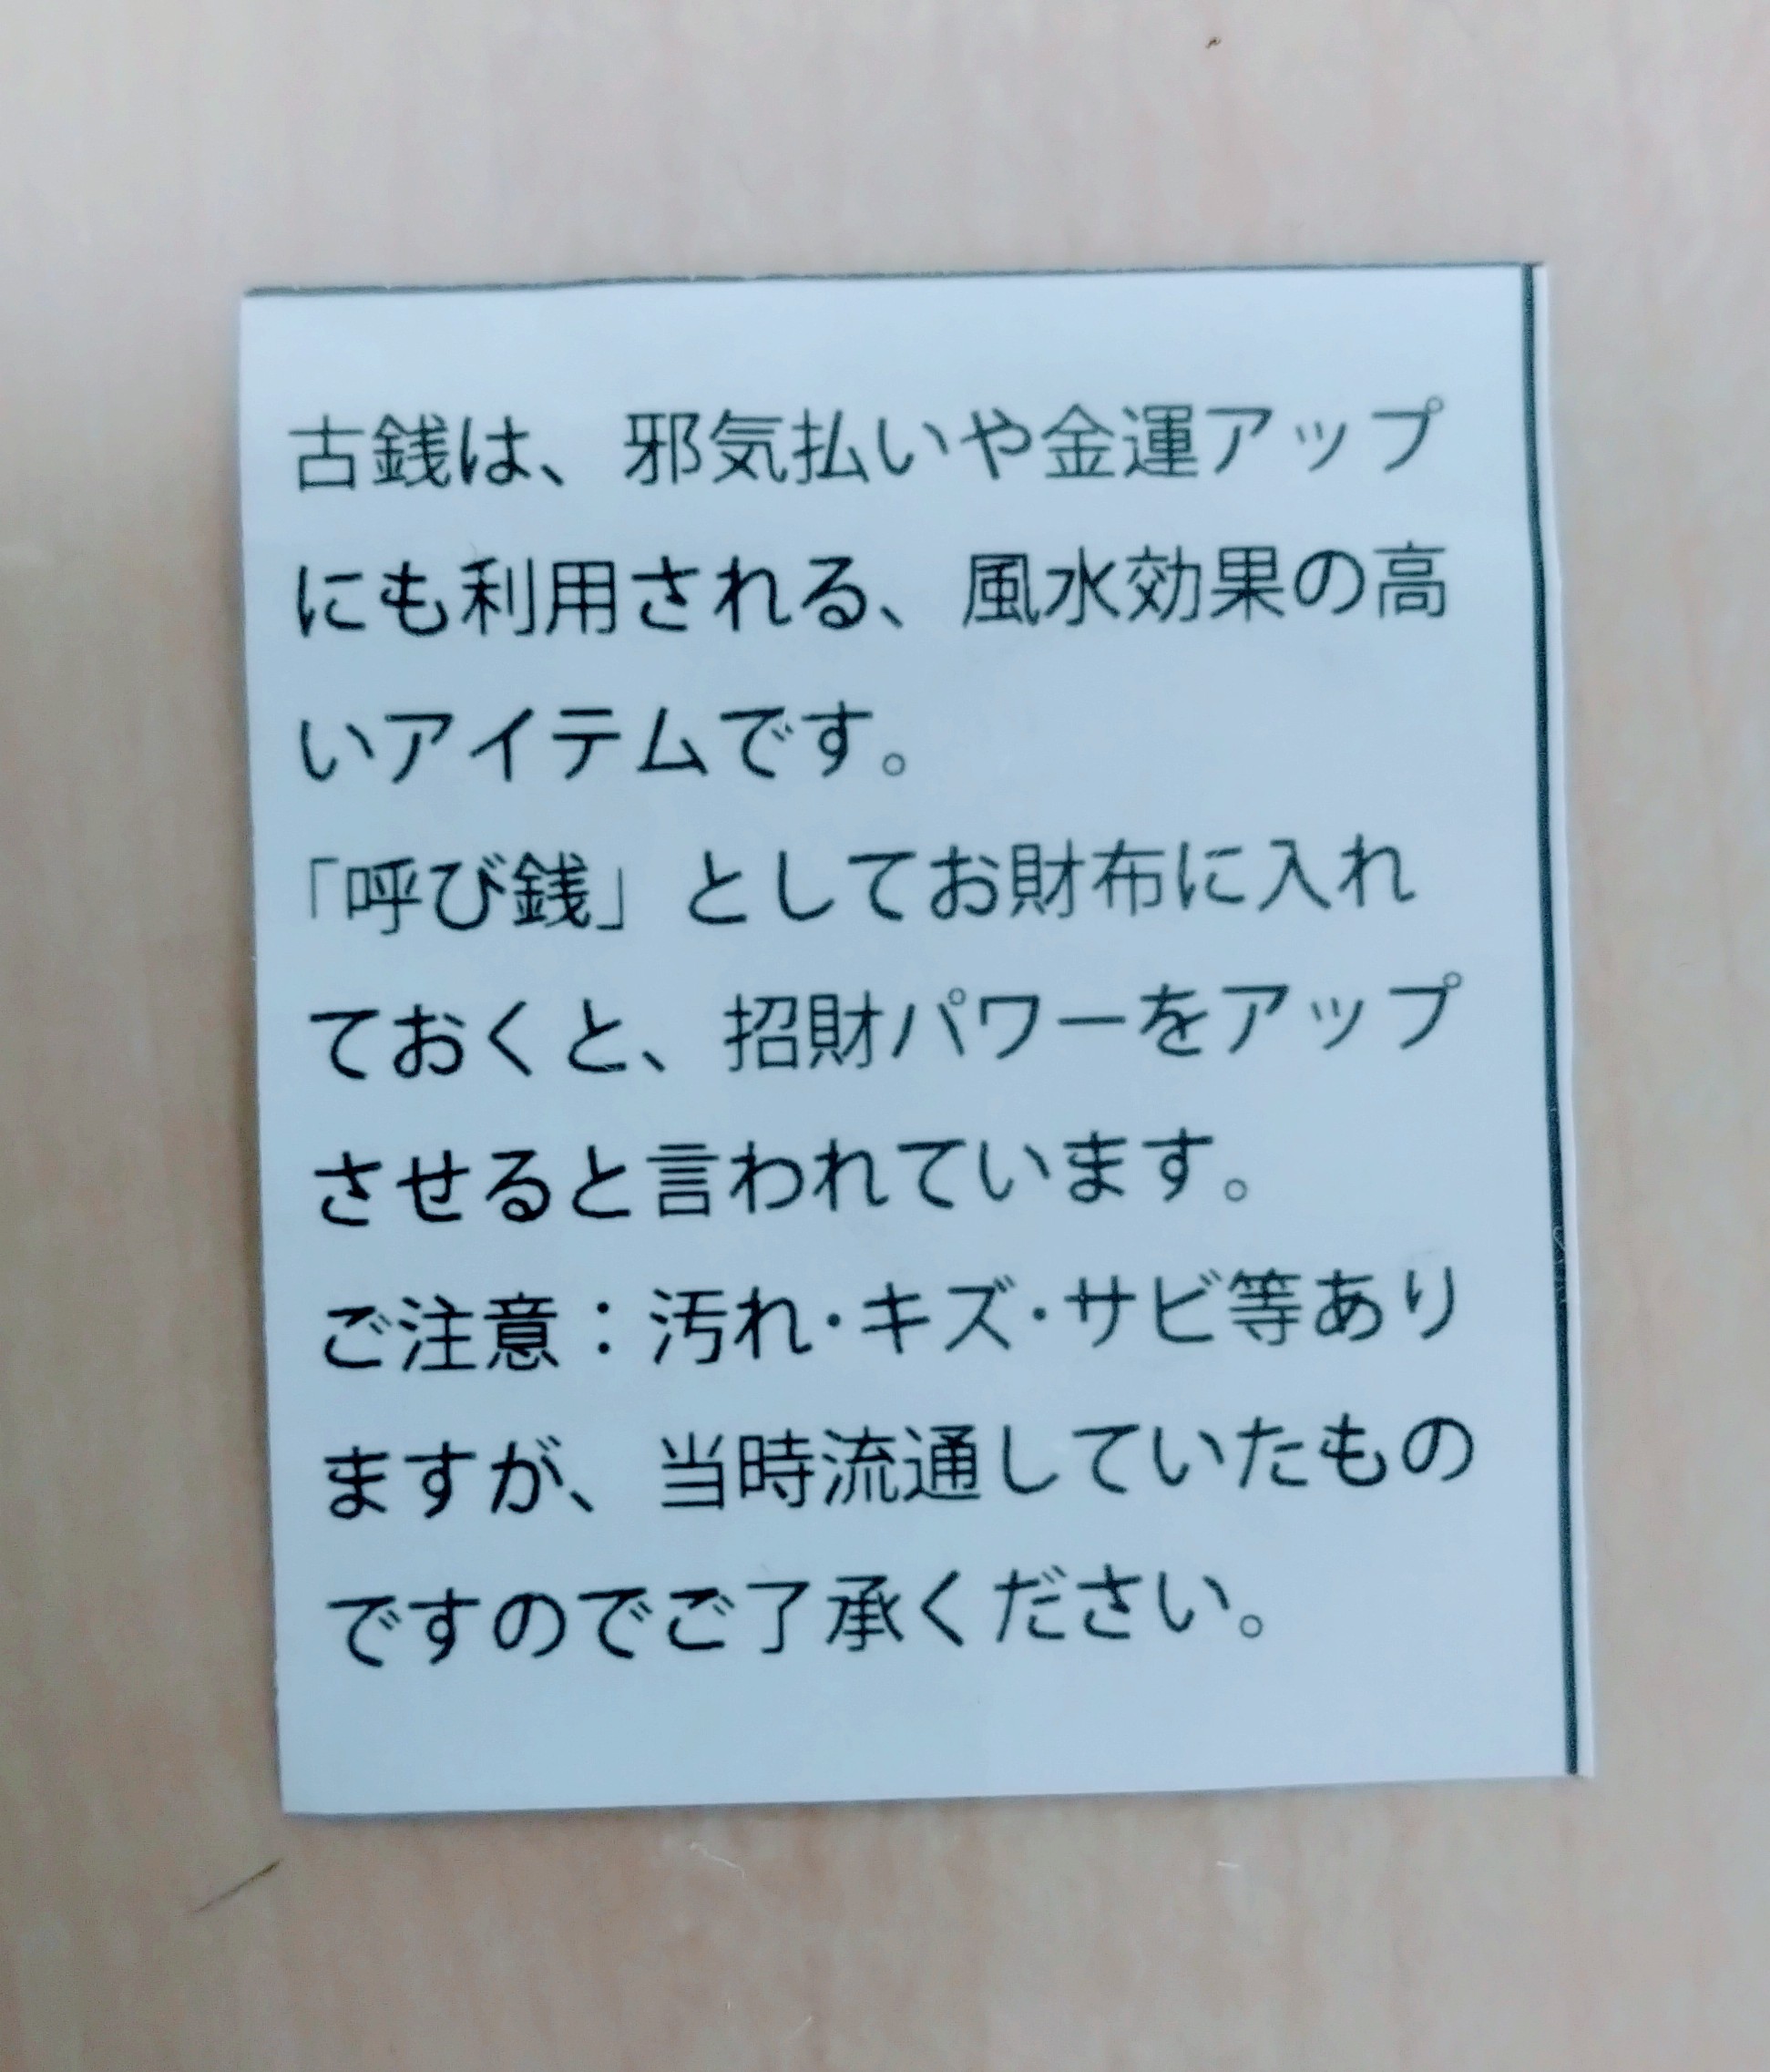 古銭は、邪気払いや金運アップ
にも利用される、風水効果の高
いアイテムです。
「呼び銭」としてお財布に入れ
ておくと、招財パワーをアップ
させると言われています。
ご注意：汚れ･キズ･サビ等あり
ますが、当時流通していたもの
ですのでご了承ください。